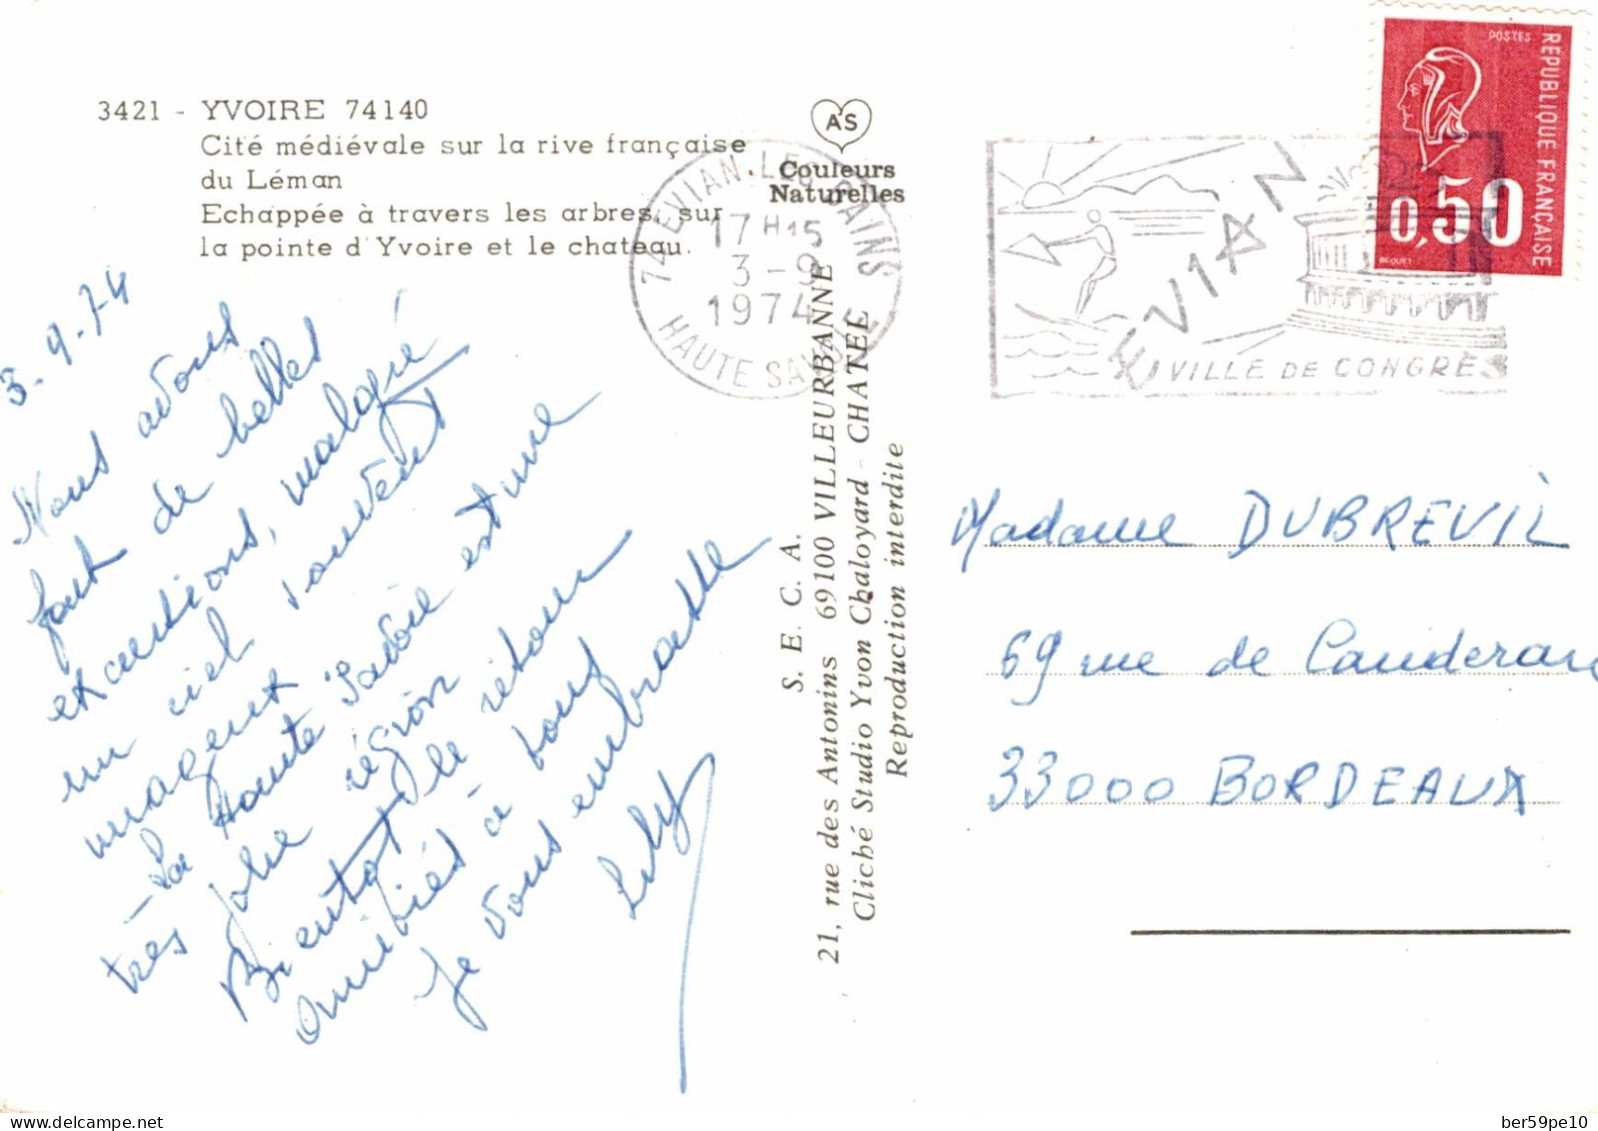 3421 - YVOIRE 74140
Cité médiévale sur la rive française
du Léman
Echappée à travers les arbres, sur
la pointe d'Yvoire et le chateau.
AS
Couleurs
Naturelles
74 EVIAN-LES-BAINS
17H15
3-9
1974
HAUTE SAVOIE
EVIAN
VILLE DE CONGRÈS
POSTES
REPUBLIQUE FRANÇAISE
0,50
BEQUET
3-9-74
Nous avons
fait de belles
excursions, malgré
un ciel souvent
nuageux
- La Haute Savoie est une
très jolie région
Bientôt le retour
Amitiés à tous
Je vous embrasse
Lily
S. E. C. A.
21, rue des Antonins 69100 VILLEURBANNE
Cliché Studio Yvon Chaloyard - CHATEL
Reproduction interdite
Madame DUBREUIL
69 rue de Cauderan
33000 BORDEAUX
delcampe.net
ber59pe10